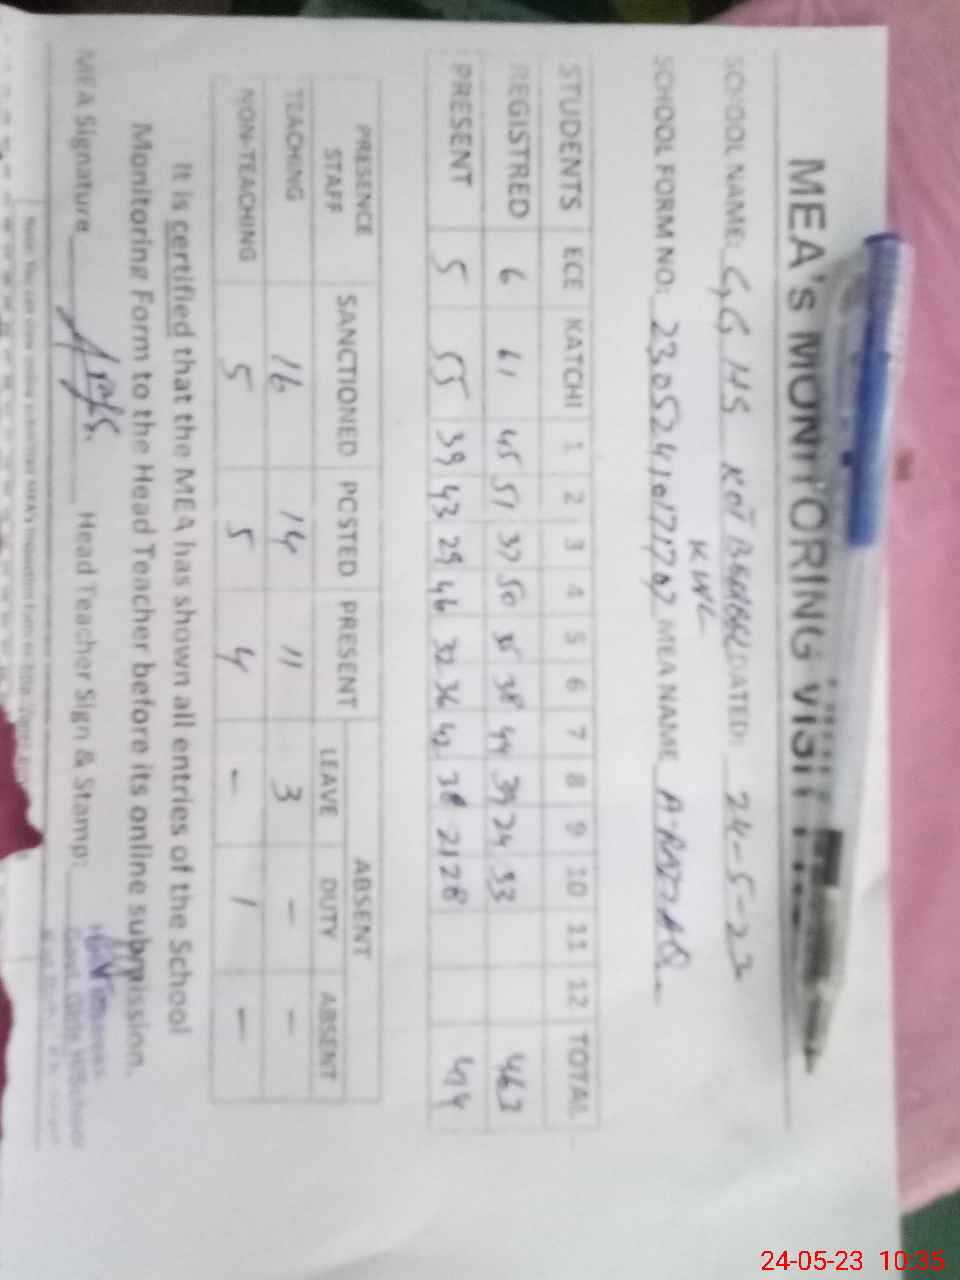 MEA's MONITORING VISIT
SCHOOL NAME: GGHS KOT DATED: 24-5-23
KWL
SCHOOL FORM NO: MEA NAME A-RAZZAQ
STUDENTS ECE KATCHI 1 2 3 4 5 6 7 8 9 10 11 12 TOTAL
REGISTRED 6 61 45 51 37 50 35 38 44 39 24 33 463
PRESENT 5 55 39 43 29 46 32 36 42 38 21 28 414
PRESENCE ABSENT
STAFF SANCTIONED POSTED PRESENT LEAVE DUTY ABSENT
TEACHING 16 14 11 3 - -
NON-TEACHING 5 5 4 - 1 -
It is certified that the MEA has shown all entries of the School
Monitoring Form to the Head Teacher before its online submission.
MEA Signature Head Teacher Sign & Stamp:
24-05-23 10:35